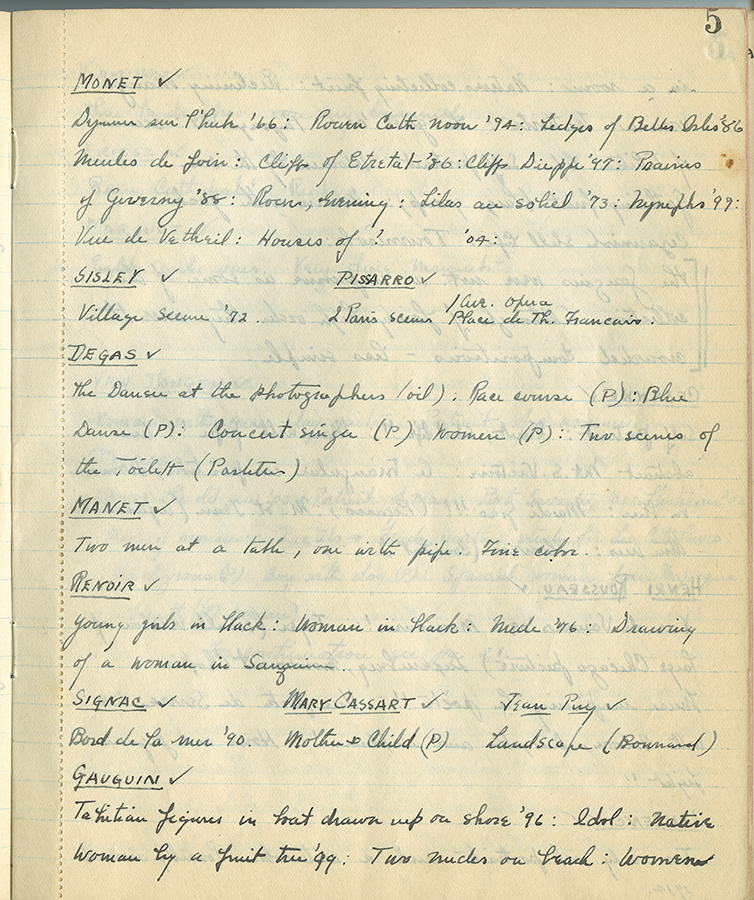 5
MONET ✓
Dejeuner sur l'herbe '66: Rouen Cath noon '94: Ledges of Belles Isles '86
Meules de foin: Cliffs of Etretat '86: Cliffs Dieppe '97: Prairies
of Giverny '88: Rouen, Evening: Lilas au soleil '73: Nymphs '99:
Vue de Vetheil: Houses of '04:
SISLEY ✓ PISSARRO ✓
Village Scene '72. 2 Paris scenes / Ave. opera
Place de Th. Francais.
DEGAS ✓
The Dancer at the photographers (oil). Race course (P): Blue
Danse (P): Concert singer (P) Women (P): Two scenes of
the Toilett
MANET ✓
Two men at a table, one with pipe. Fine color.
RENOIR ✓
Young girls in black: Woman in black: Nude '76: Drawing
of a woman in Sanguine.
SIGNAC ✓ MARY CASSART ✓ Jean Puy ✓
Bord de la mer '90. Mother & Child (P) Landscape (Bonnard)
GAUGUIN ✓
Tahitian figures in boat drawn up on shore '96: Idol: Native
Woman by a fruit tree '99: Two nudes on beach: Women